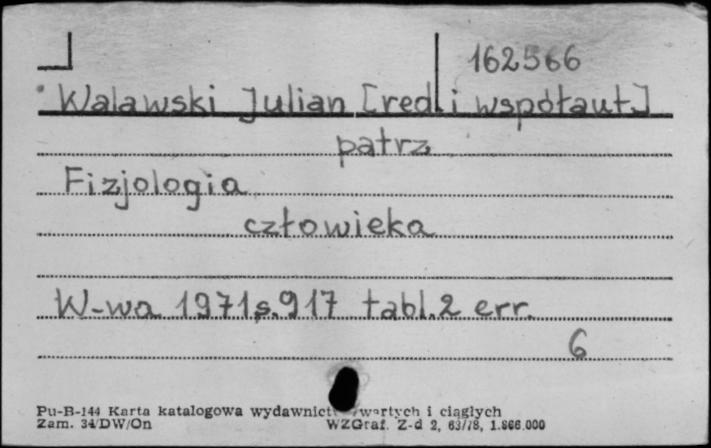 162566
Walawski Julian [red. i współaut.]
patrz
Fizjologia
człowieka
W-wa 1971 s. 917 tabl. 2 err.
6
Pu-B-144 Karta katalogowa wydawnict i ciągłych
Zam. 34/DW/On WZGraf. Z-d 2, 63/78, 1.866.000